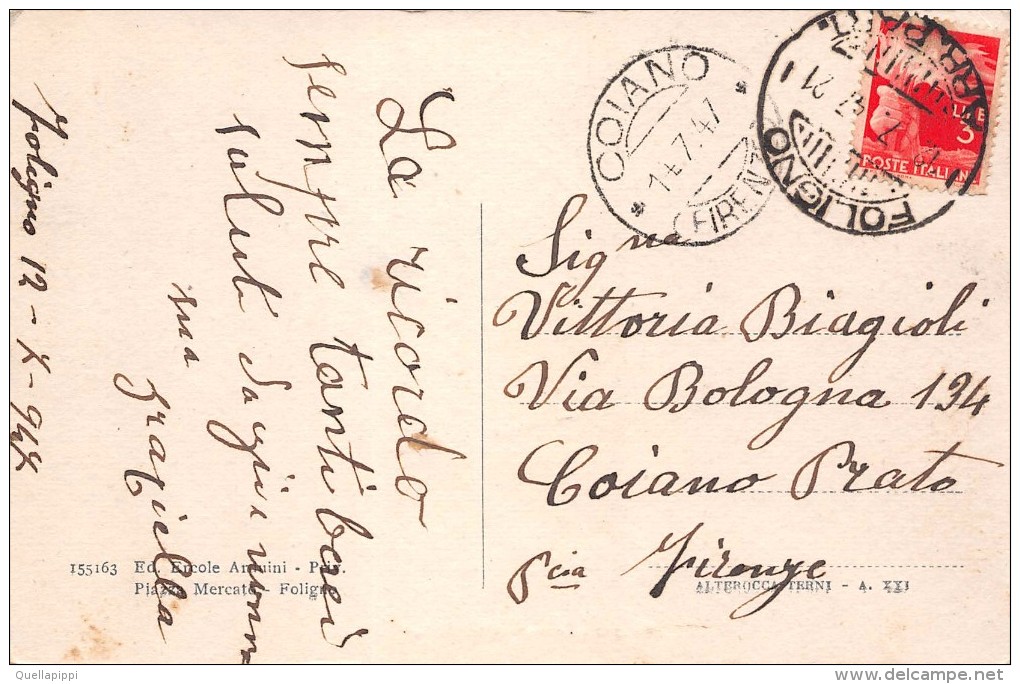 La ricordo
sempre tanti baci
saluti da zii e nonna
sua
Graziella
Foligno 12-X-947
COIANO
14.7.47
(FIRENZE)
FOLIGNO
ARR. PART.
LIRE
3
POSTE ITALIANE
Sig na
Vittoria Biagioli
Via Bologna 134
Coiano Prato
Pcia Firenze
155163 Ed. Ercole Arquini - Priv.
Piazza Mercato - Foligno
ALTEROCCA-TERNI - A. XXI
Quellapippi
delcampe.net